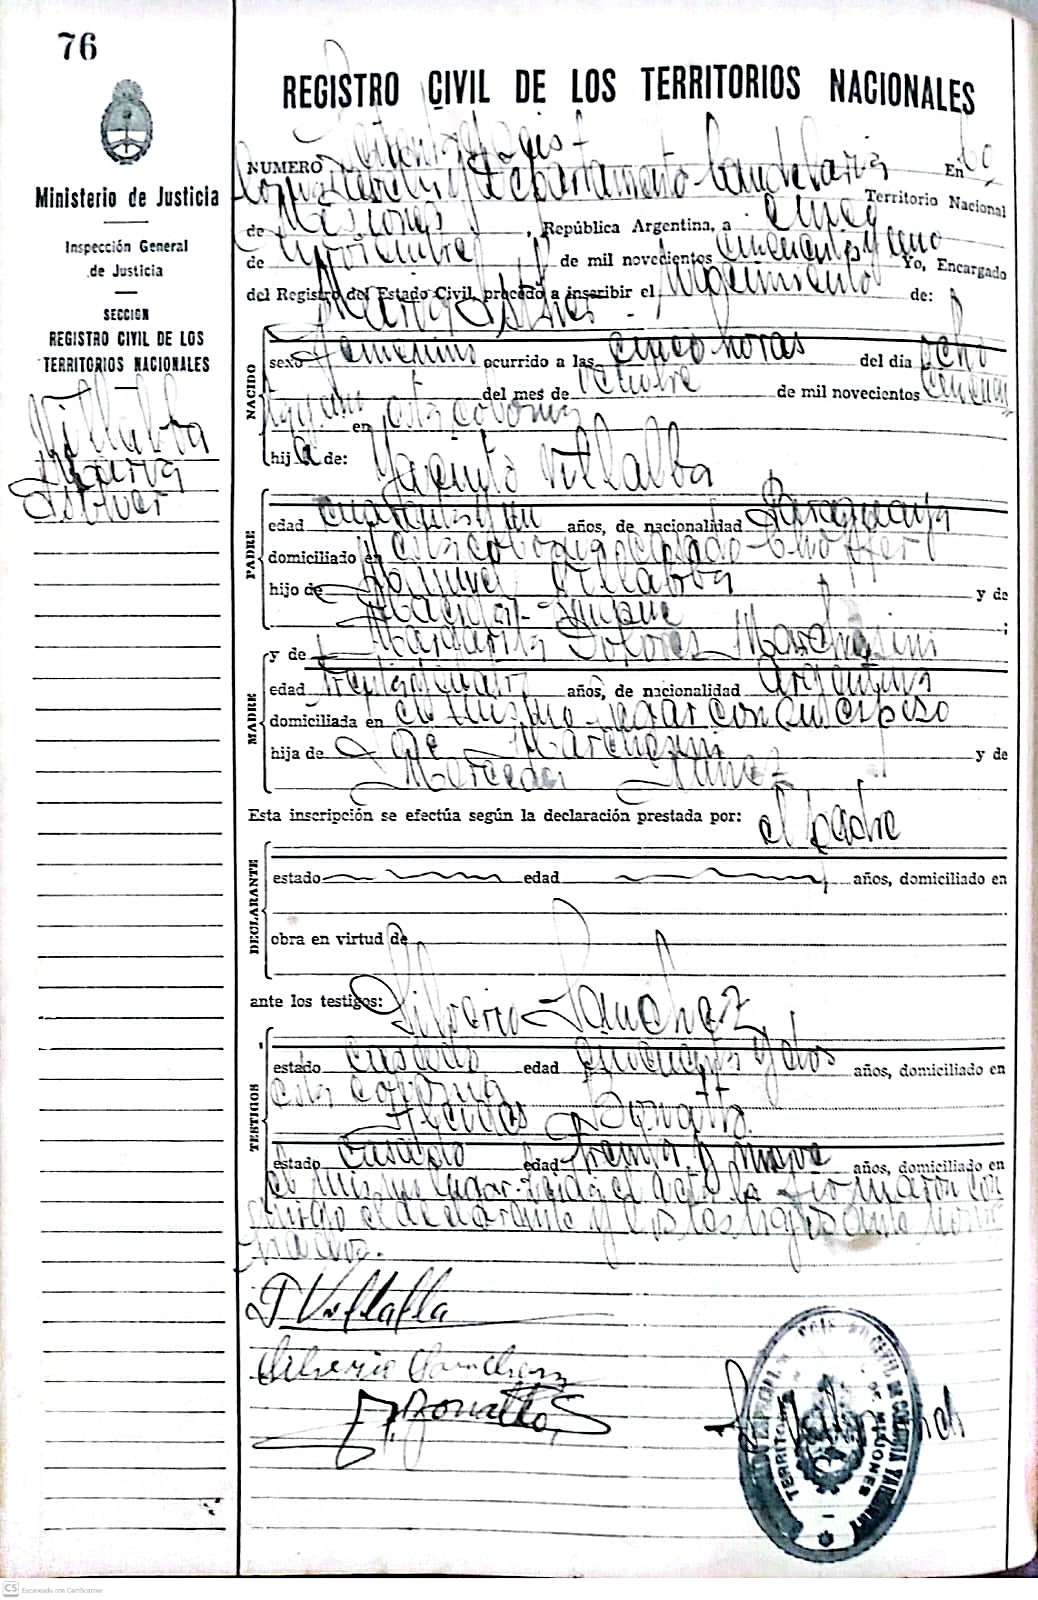 76
REGISTRO CIVIL DE LOS TERRITORIOS NACIONALES
Ministerio de Justicia
Inspección General
de Justicia
SECCION
REGISTRO CIVIL DE LOS
TERRITORIOS NACIONALES
Villalba
Maria
NUMERO Setenta y seis En
Departamento Candelaria Territorio Nacional
de Misiones, República Argentina, a cinco
de noviembre de mil novecientos cincuenta y uno Yo, Encargado
del Registro del Estado Civil, procedo a inscribir el nacimiento de:
Maria
NACIDO
sexo femenino ocurrido a las cinco horas del día ocho
del mes de octubre de mil novecientos cincuen
ta y uno en esta colonia
hija de: Jacinto Villalba
PADRE
edad cuarenta y un años, de nacionalidad Paraguaya
domiciliado en esta colonia casado chofer
hijo de Villalba y de
;
y de Margarita Dolores Marchesini
MADRE
edad años, de nacionalidad argentina
domiciliada en el mismo lugar con su esposo
hija de José Marchesini y de
Mercedes Nuñez
Esta inscripción se efectúa según la declaración prestada por: el padre
DECLARANTE
estado edad años, domiciliado en
obra en virtud de
ante los testigos: Silverio Sanchez
TESTIGOS
estado casado edad cincuenta y dos años, domiciliado en
esta colonia
Bonatto
estado casado edad treinta y nueve años, domiciliado en
el mismo lugar. Leida el acta la firmaron con
migo el declarante y los testigos ante nom
brados.
J Villalba
Silverio Sanchez
Bonatto
REGISTRO CIVIL DE COLONIA
TERRITORIO
MISIONES
CS Escaneado con CamScanner